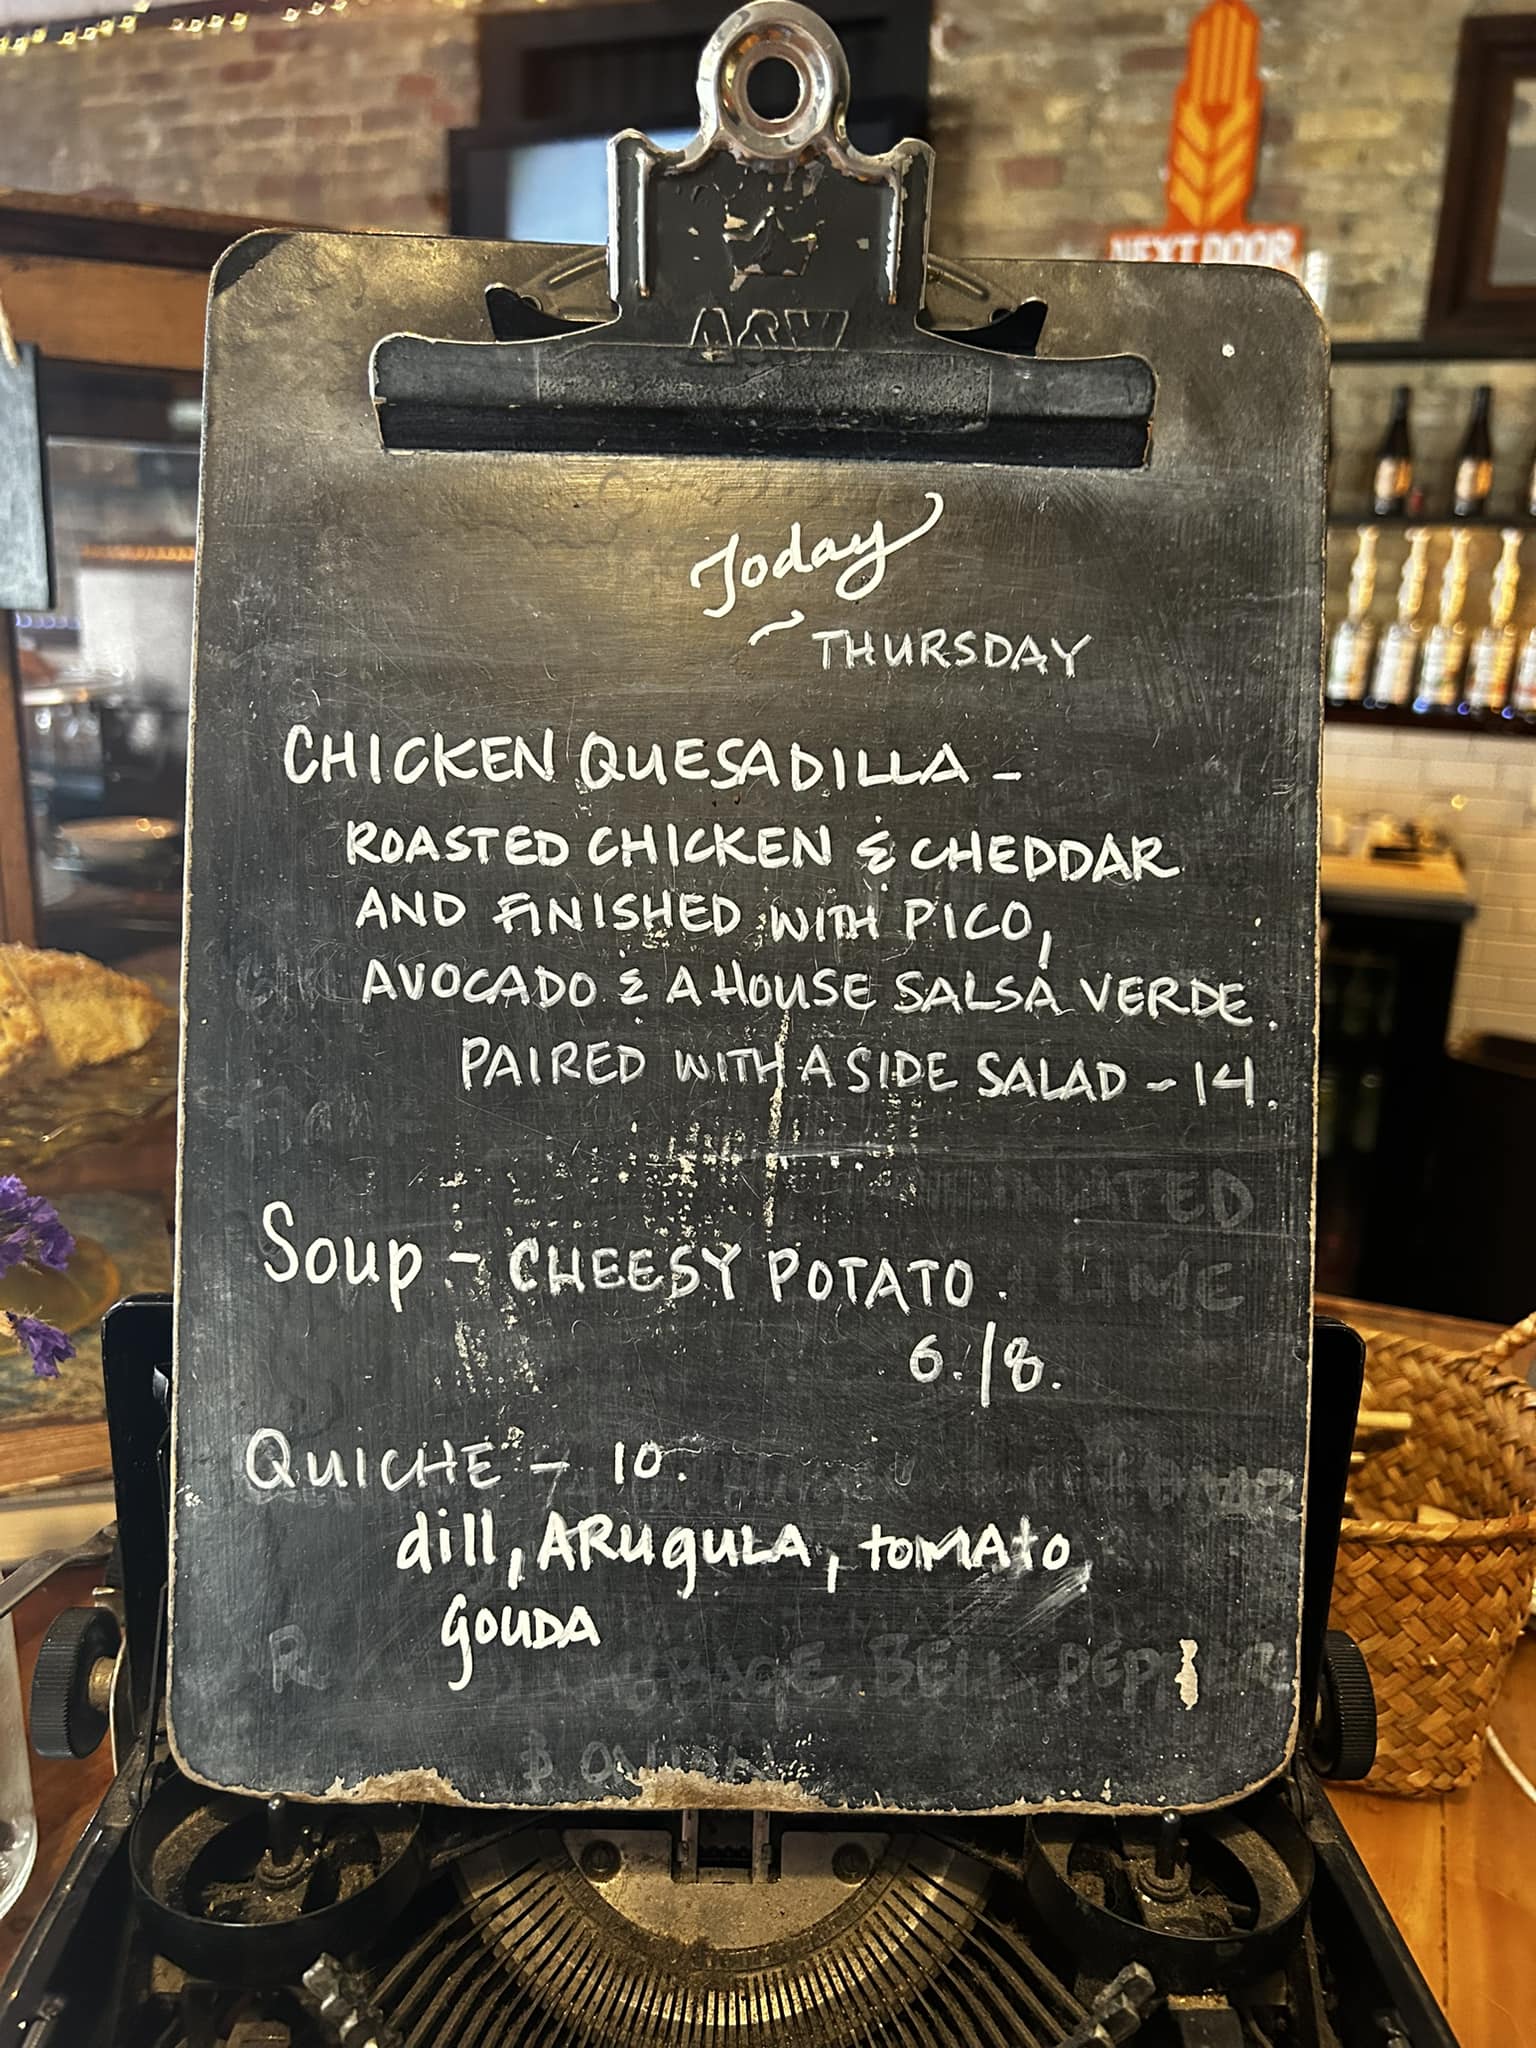 NEXT DOOR
ACW
Today
THURSDAY
CHICKEN QUESADILLA -
ROASTED CHICKEN & CHEDDAR
AND FINISHED WITH PICO,
AVOCADO & A HOUSE SALSA VERDE.
PAIRED WITH A SIDE SALAD - 14.
Soup - CHEESY POTATO.
6./8.
QUICHE - 10.
dill, ARugULA, toMAto,
gOUDA
LIME
BELL PEPPER